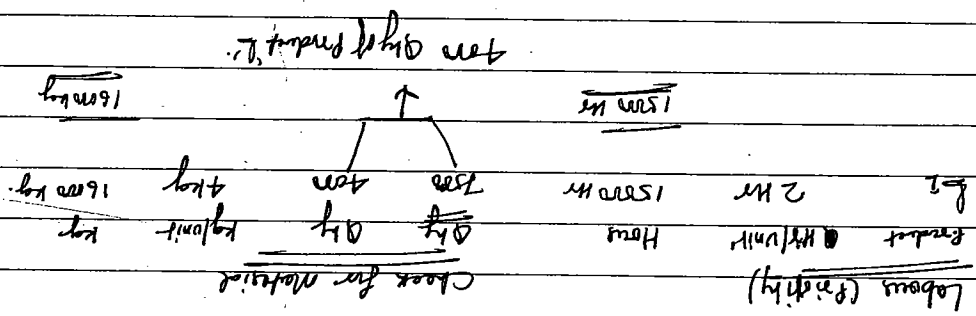 Labour (Priority) Check for Material
Product Hr/unit Hour Qty Qty kg/unit kg
2 Hr 15000 Hr 7500 4000 4 kg 16000 kg.
15000 Hr ↑ 16000 kg
4000 Qty of Product 'L'.